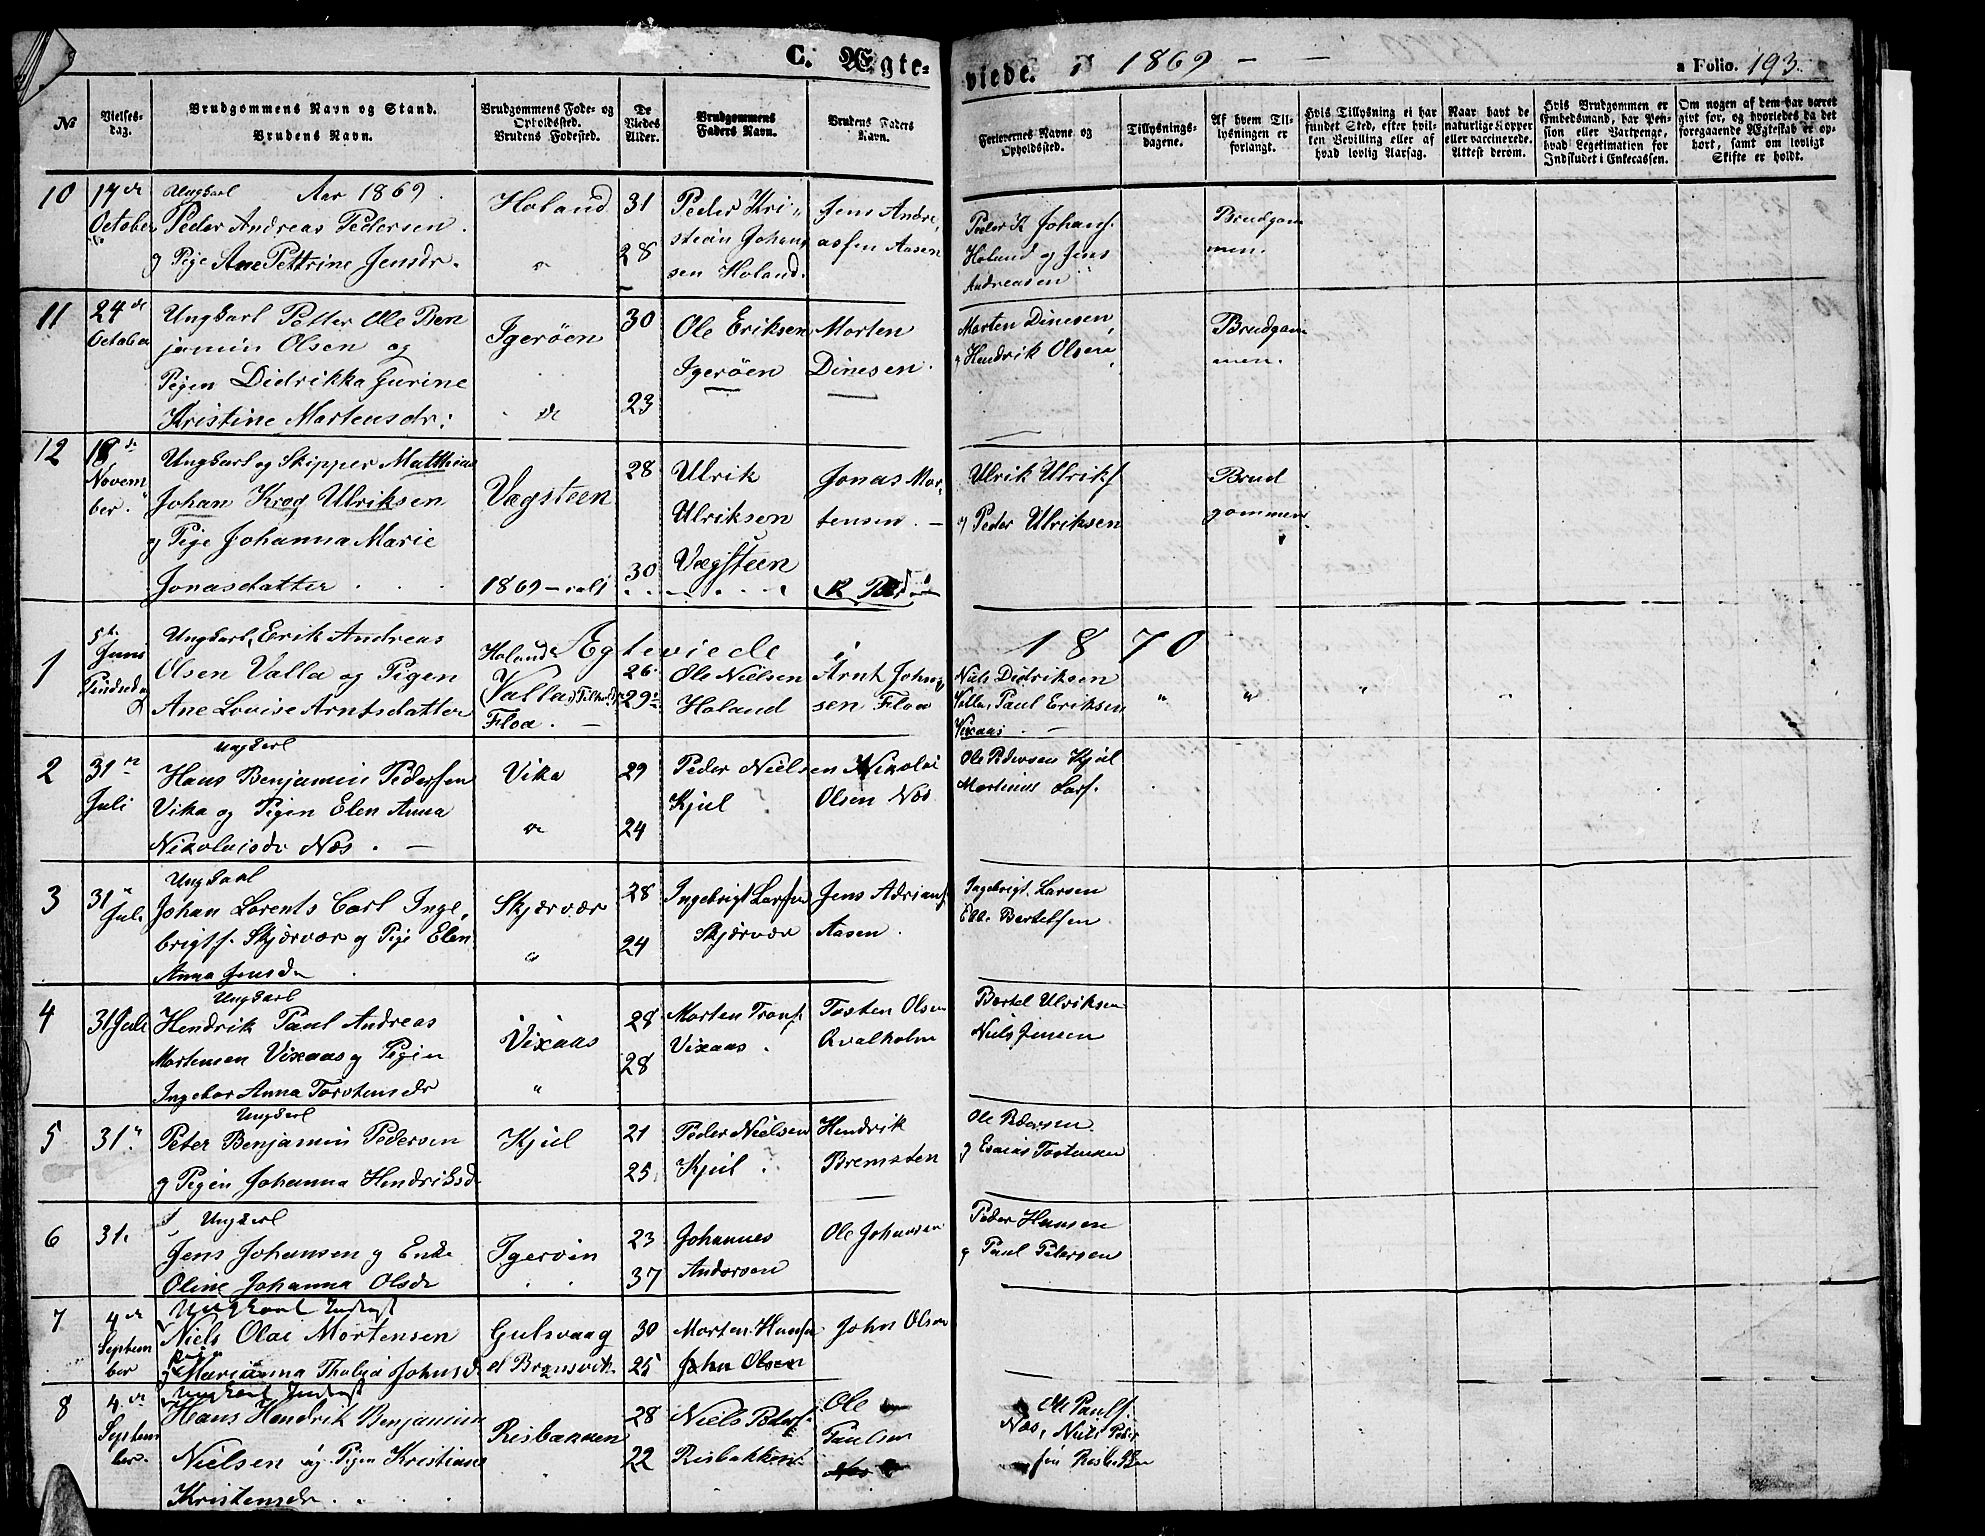 C. Ægte-
viede. i 1869 - -
a Folio. 193.
No
Vielses-
dag.
Brudgommens Navn og Stand.
Brudens Navn.
Brudgommens Føde- og
Opholdssted.
Brudens Fødested.
De
Viedes
Alder.
Brudgommens
Faders Navn.
Brudens Faders
Navn.
Forlovernes Navne og
Opholdssted.
Tillysnings-
dagene.
Af hvem Til-
lysningen er
forlangt.
Hvis Tillysning ei har
fundet Sted, efter hvil-
ken Bevilling eller af
hvad lovlig Aarsag.
Naar havt de
naturlige Kopper
eller vaccinerede.
Attest derom.
Hvis Brudgommen er
Embedsmand, har Pen-
sion eller Vartpenge,
hvad Legitimation for
Indskudet i Enkecassen.
Om nogen af dem har været
givt før, og hvorledes da det
foregaaende Ægteskab er op-
hørt, samt om lovligt
Skifte er holdt.
10
17de
October
Ungkarl Aar 1869
Peder Andreas Pedersen
og Pige Ane Pettrine Jensdr.
Holand
31
28
Peder Kri-
stian Johan-
sen Holand.
Jens Andre-
assen Aasen
Peder K Johans.
Holand og Jens
Andreasen
Brudgom
men.
11
24de
October
Ungkarl Petter Ole Ben
jamin Olsen og
Pigen Didrikka Gurine
Kristine Martensdr.
Igerøen
do
30
23
Ole Eriksen
Igerøen
Morten
Dinesen.
Morten Dinesen
og Hendrik Olsen
Brudgom
men.
12
18de
Novem
ber.
Ungkarl og Skipper Matthias
Johan Krog Ulriksen
og Pige Johanna Marie
Jonasdatter
Vægsteen
1869
28
30
Ulrik
Ulriksen
Vægsteen
Jonas Mor-
tensen. -
Ulrik Ulriks
og Peder Ulriksen
Brud
gommen
Ægteviede i 1870
1
5te
Juni
Ungkarl, Erik Andreas
Olsen Valla og Pigen
Ane Lovise Arntsdatter
Holand
Valla
Floa. -
26
29
Ole Nielsen
Holand
Arnt Johan-
sen Floa
Niels Didriksen
Valla, Paul Eriksen
Vixaas
2
31te
Juli
Ungkarl
Hans Benjamin Pederssen
Vika og Pigen Elen Anna
Nikolaisdr Næs. -
Vika
do
29
24
Peder Nielsen
Kjul
Nikolai
Olsen Næs
Ole Pedersen Kjul
Martinus Lars.
3
31"
Juli
Ungkarl
Johan Lorents Carl Inge-
brigts. Skjærvær og Pige Elen
Anna Jensdr
Skjærvær
"
28
24
Ingebrigt Larsen
Skjærvær
Jens Adrians
Aasen.
Ingebrigt Larsen
Bertelsen
4
31 Juli
Ungkarl
Hendrik Paul Andreas
Mortensen Vixaas og Pigen
Ingebor Anna Torstensdr
Vixaas
"
28
28
Morten Trons.
Vixaas.
Tosten Olsen
Qvalholm
Bertel Ulriksen
Niels Jensen
5
31"
Ungkarl
Peter Benjamin Pedersen
og Pigen Johanna Hendriksd.
Kjul
21
25
Peder Nielsen
Kjul
Hendrik
Bremsten
Ole Pedersen
og Esaias Tostensen
6
31.
Ungkarl
Jens Johansen og Enke
Oline Johanna Olsdr
Igerøen
23
37
Johannes
Andersen
Ole Johansen
Peder Hansen
og Paul Petersen
7
4de
Septem
ber
Ungkarl Inderst
Niels Olai Mortensen
Pige
og Marianna Thalia Johnsd.
Gulsvaag
30
25
Morten Hansen
John Olsen
John Olsen
8
4de
Septem
ber.
Ungkarl Inderst
Hans Hendrik Benjamin
Nielsen og Pigen Kristiane
Kristensdr.
Risbakken
28
22
Niels Peders.
Risbakken
Ole
Paulsen
Næs
Ole Pauls
Næs, Niels Peder
sen Risbakken